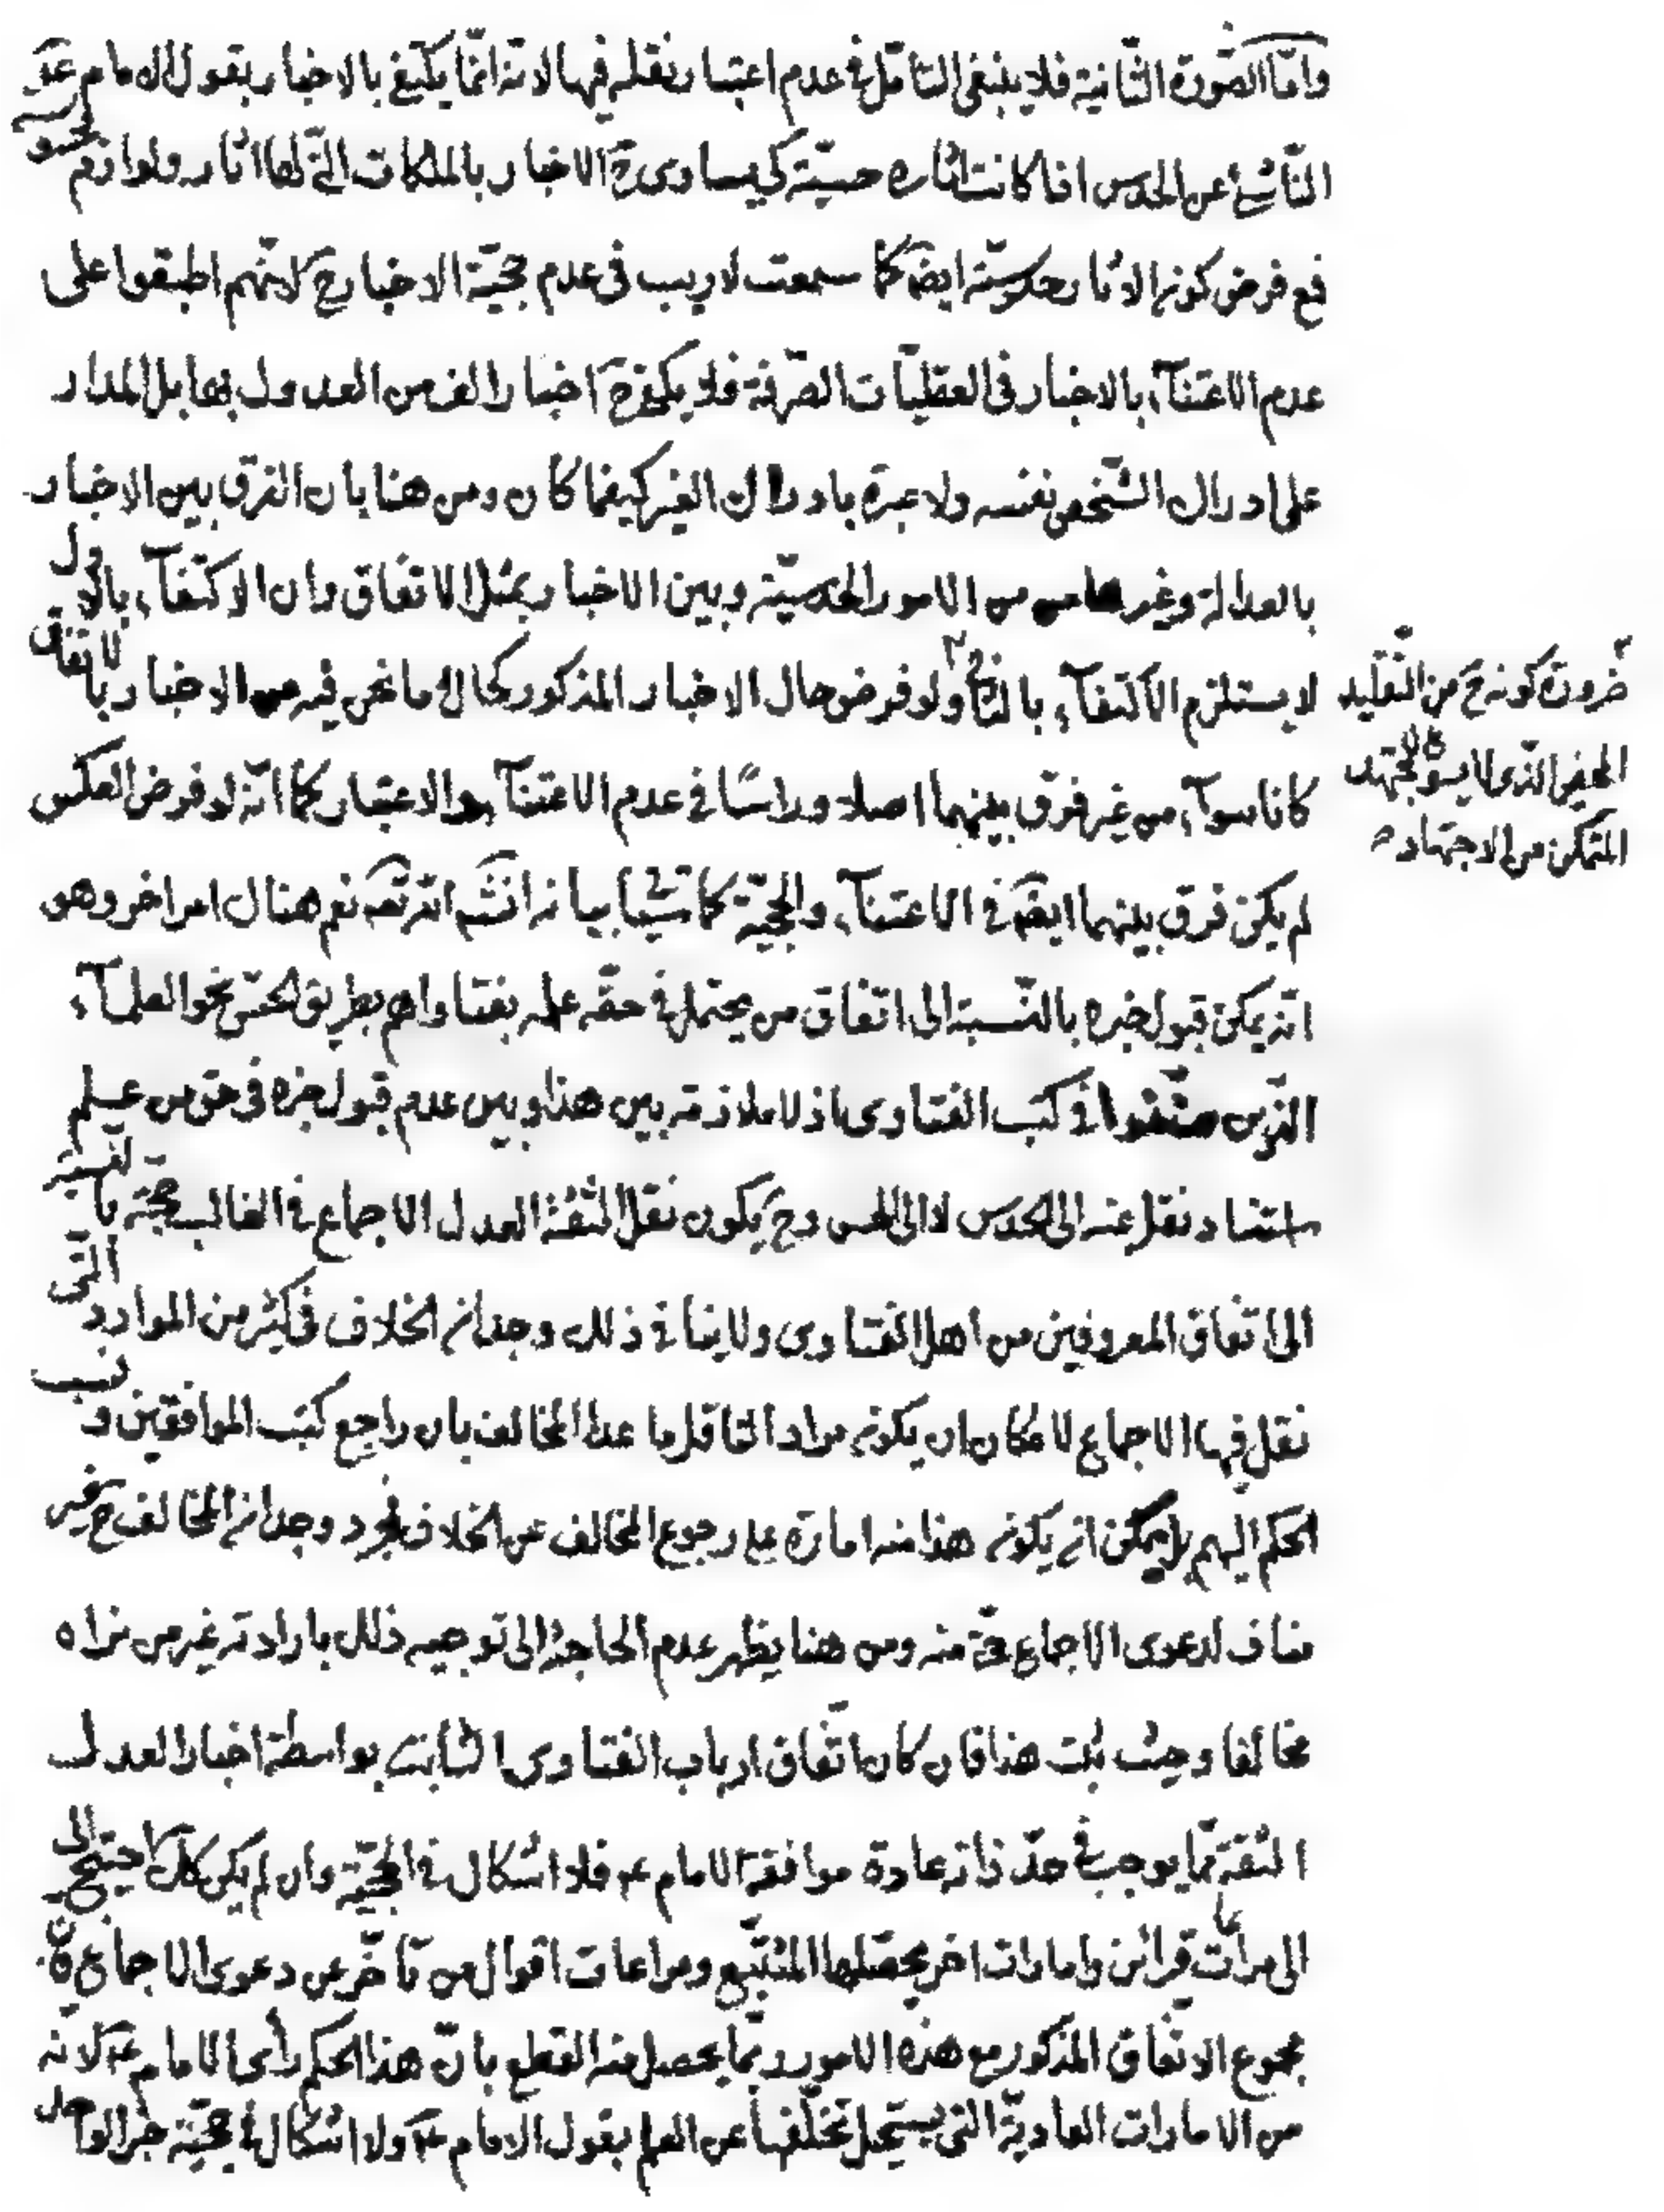 وامّا الصّورة الثّانية فلا ينبغي التامّل في عدم اعتبار نقله فيها لانه انّما يكتفي بالاخبار بقول الامام عم
النّاشئ عن الحدس اذا كانت اثاره حسيّة كي يساوى ح الاخبار بالملكات الّتي لها اثار ولوازم حسيّة
فمع فرض كون الاثار حدسيّة ايضا كما سمعت لا ريب في عدم حجيّة الاخبار ح لانّهم اطبقوا على
عدم الاعتناء بالاخبار في العقليّات الصّرفة فلا يكفي ح اخبار الف من العدول بها بل المدار
على ادراك الشّخص نفسه ولا عبرة بادراك الغير كيفما كان ومن هنا بان الفرق بين الاخبار
بالعدالة وغيرها من الامور الحدسيّة وبين الاخبار بمثل الاتفاق وان الاكتفاء بالاول
لا يستلزم الاكتفاء بالثاني ولو فرض حال الاخبار المذكور كحال ما نحن فيه من الاخبار بالاتفاق
ضرورة كونه ح من التّقليد
الذى لا يسوغ للمجتهد
المتمكن من الاجتهاد
كانا سواء من غير فرق بينهما اصلا وراسًا في عدم الاعتناء والاعتبار كما انّه لو فرض العكس
لم يكن فرق بينهما ايضا في الاعتناء والحجيّة كما سيأتي بيانه انشم اللّه تعم نعم هناك امر اخر وهو
انّه يمكن قبول خبره بالنّسبة الى اتّفاق من يحتمل في حقّه علمه بفتاواهم بطريق الحسّ نحو العلماء
الّذين صنّفوا في كتب الفتاوى اذ لا ملازمة بين هذا وبين عدم قبول خبره في حق من علم
استناد نقله عنه الى الحدس لا الى الحس وح يكون نقل الثّقة العدل الاجماع في الغالب حجّة بالنّسبة
الى اتفاق المعروفين من اهل الفتاوى ولا ينافي ذلك وجدان الخلاف في كثير من الموارد الّتى
نقل فيها الاجماع لامكان ان يكون مراد الناقل ما عدا المخالف بان راجع كتب الموافقين ونسب
الحكم اليهم بل يمكن ان يكون هذا منه امارة على رجوع المخالف عن الخلاف فمجرد وجدان المخالف ح غير
مناف لدعوى الاجماع ح منه ومن هنا يظهر عدم الحاجة الى توجيه ذلك بارادته غير من نراه
مخالفا وحيث ثبت هذا فان كان اتّفاق ارباب الفتاوى الثابت بواسطة اخبار العدل
الثقة ممّا يوجب في حدّ ذاته عادة موافقة الامام عم فلا اشكال في الحجيّة وان لم يكن كك احتيج الى
الى مراعات قرائن وامارات اخر يحصّلها المتتبّع ومراعات اقوال من تاخّر عن دعوى الاجماع فان
مجموع الاتّفاق المذكور مع هذه الامور ربّما يحصل منه القطع بانّ هذا الحكم رأى الامام عم لانّه
من الامارات العاديّة التى يستحيل تخلّفها عن العلم بقول الامام عم ولا اشكال في حجيّة خبر الواحد